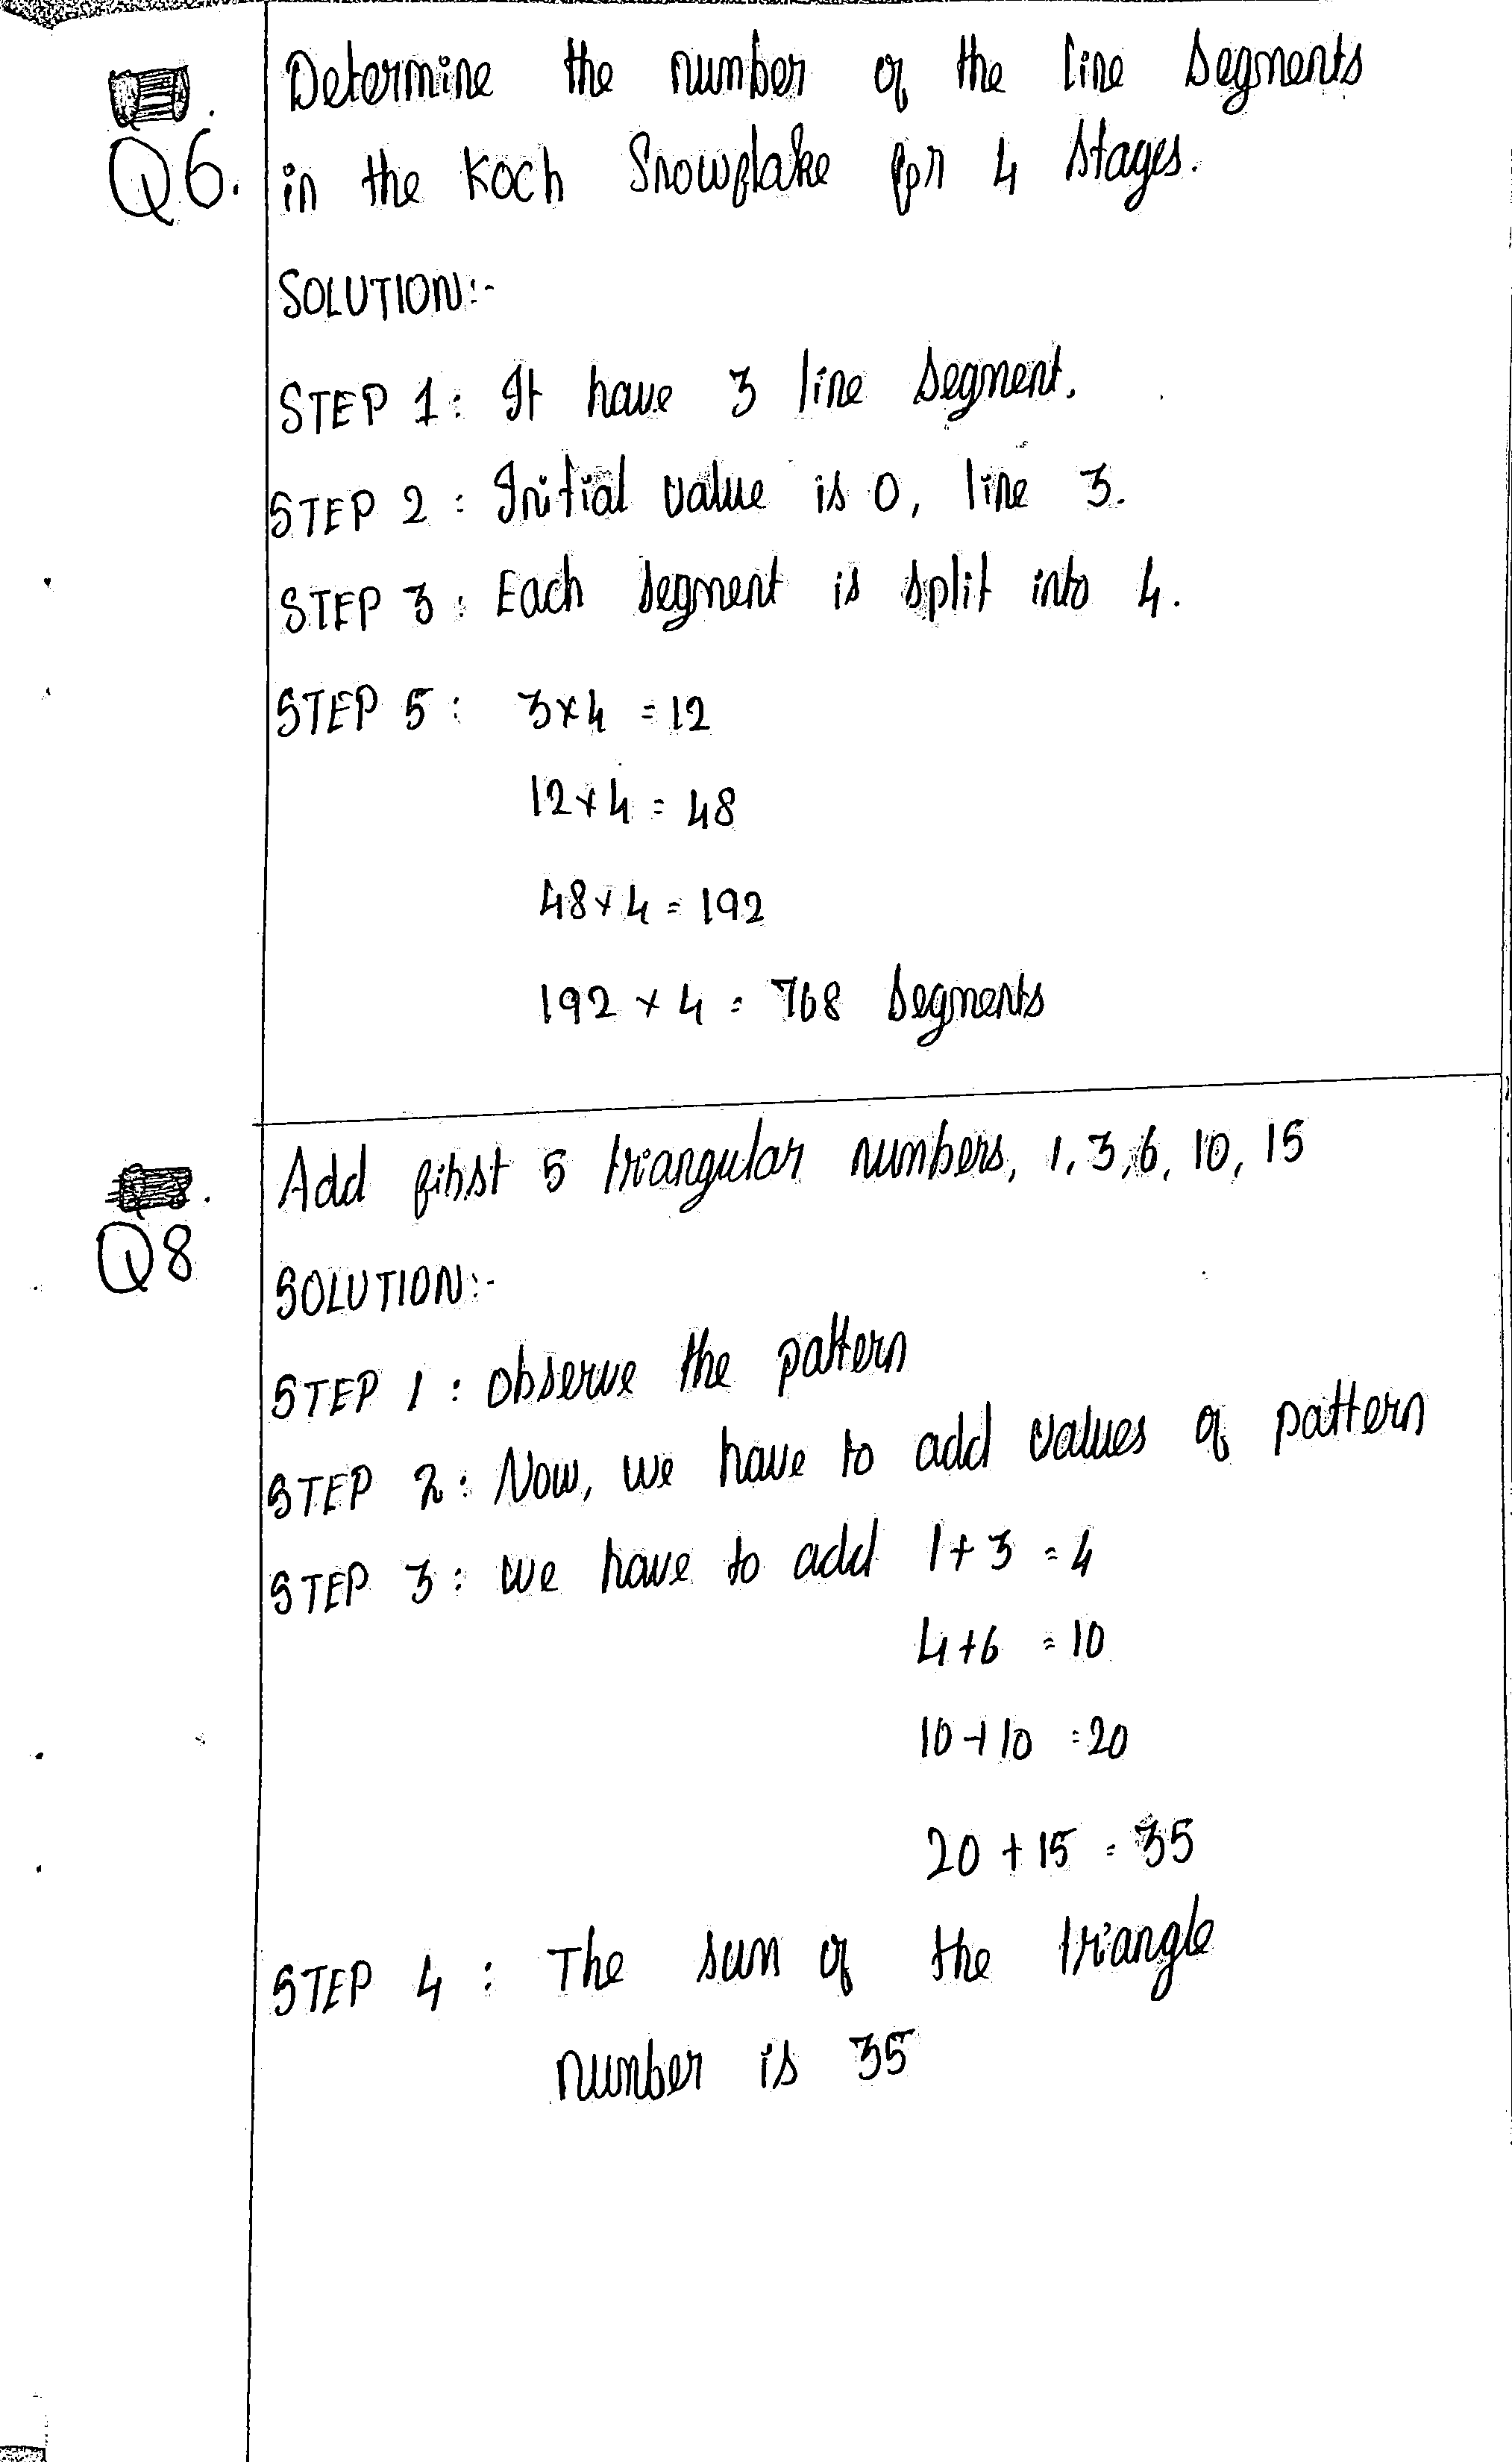 Determine the number of the line segments
Q6. in the Koch Snowflake for 4 stages.
SOLUTION:-
STEP 1: It have 3 line segment.
STEP 2: Initial value is 0, line 3.
STEP 3: Each segment is split into 4.
STEP 5: 3×4 = 12
12×4 = 48
48×4 = 192
192 × 4 = 768 segments
Add first 5 triangular numbers, 1, 3, 6, 10, 15
Q8
SOLUTION:-
STEP 1: observe the pattern
STEP 2: Now, we have to add values of pattern
STEP 3: we have to add 1+3 = 4
4+6 = 10
10+10 = 20
20 + 15 = 35
STEP 4: The sum of the triangle
number is 35